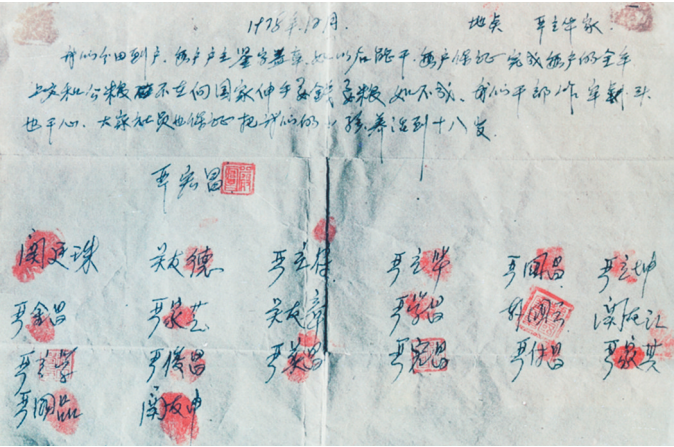 1978年12月. 地点 严立华家
我们分田到户,每户户主签字盖章,如以后能干,每户保证完成每户的全年
上交和公粮 不在向国家伸手要钱要粮,如不成,我们干部作牢刹头
也干心,大家社员也保证把我们的小孩养活到十八岁.
严宏昌
関廷珠 关友德 严立符 严立华 严国昌 严立坤
严金昌 严家芝 关友章 严学昌 韩国云 関友江
严立学 严俊昌 严美昌 严宏昌 严付昌 严家其
严国品 関友申